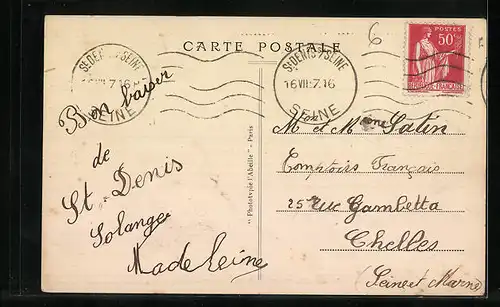 CARTE POSTALE
Bon baiser
de
St. Denis
Solange
Madeleine
"Phototypie l'Abeille" - Paris
ST DENIS S/SEINE
16 VII 7.16
SEINE
ST DENIS S/SEINE
16 VII 7.16
SEINE
6
POSTES
50c
REPUBLIQUE FRANÇAISE
M et Mme Satin
Comptoirs Français
25 rue Gambetta
Chelles
(Seine et Marne)